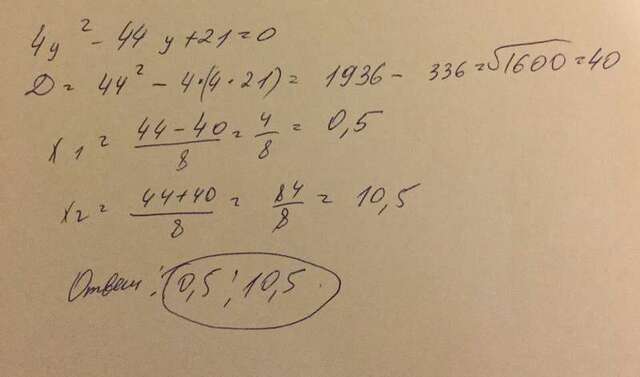 4y² - 44y + 21 = 0
D = 44² - 4·(4·21) = 1936 - 336 = √1600 = 40
x₁ = (44-40)/8 = 4/8 = 0,5
x₂ = (44+40)/8 = 84/8 = 10,5
Ответ: 0,5; 10,5.